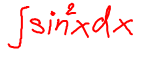 ∫sin²xdx